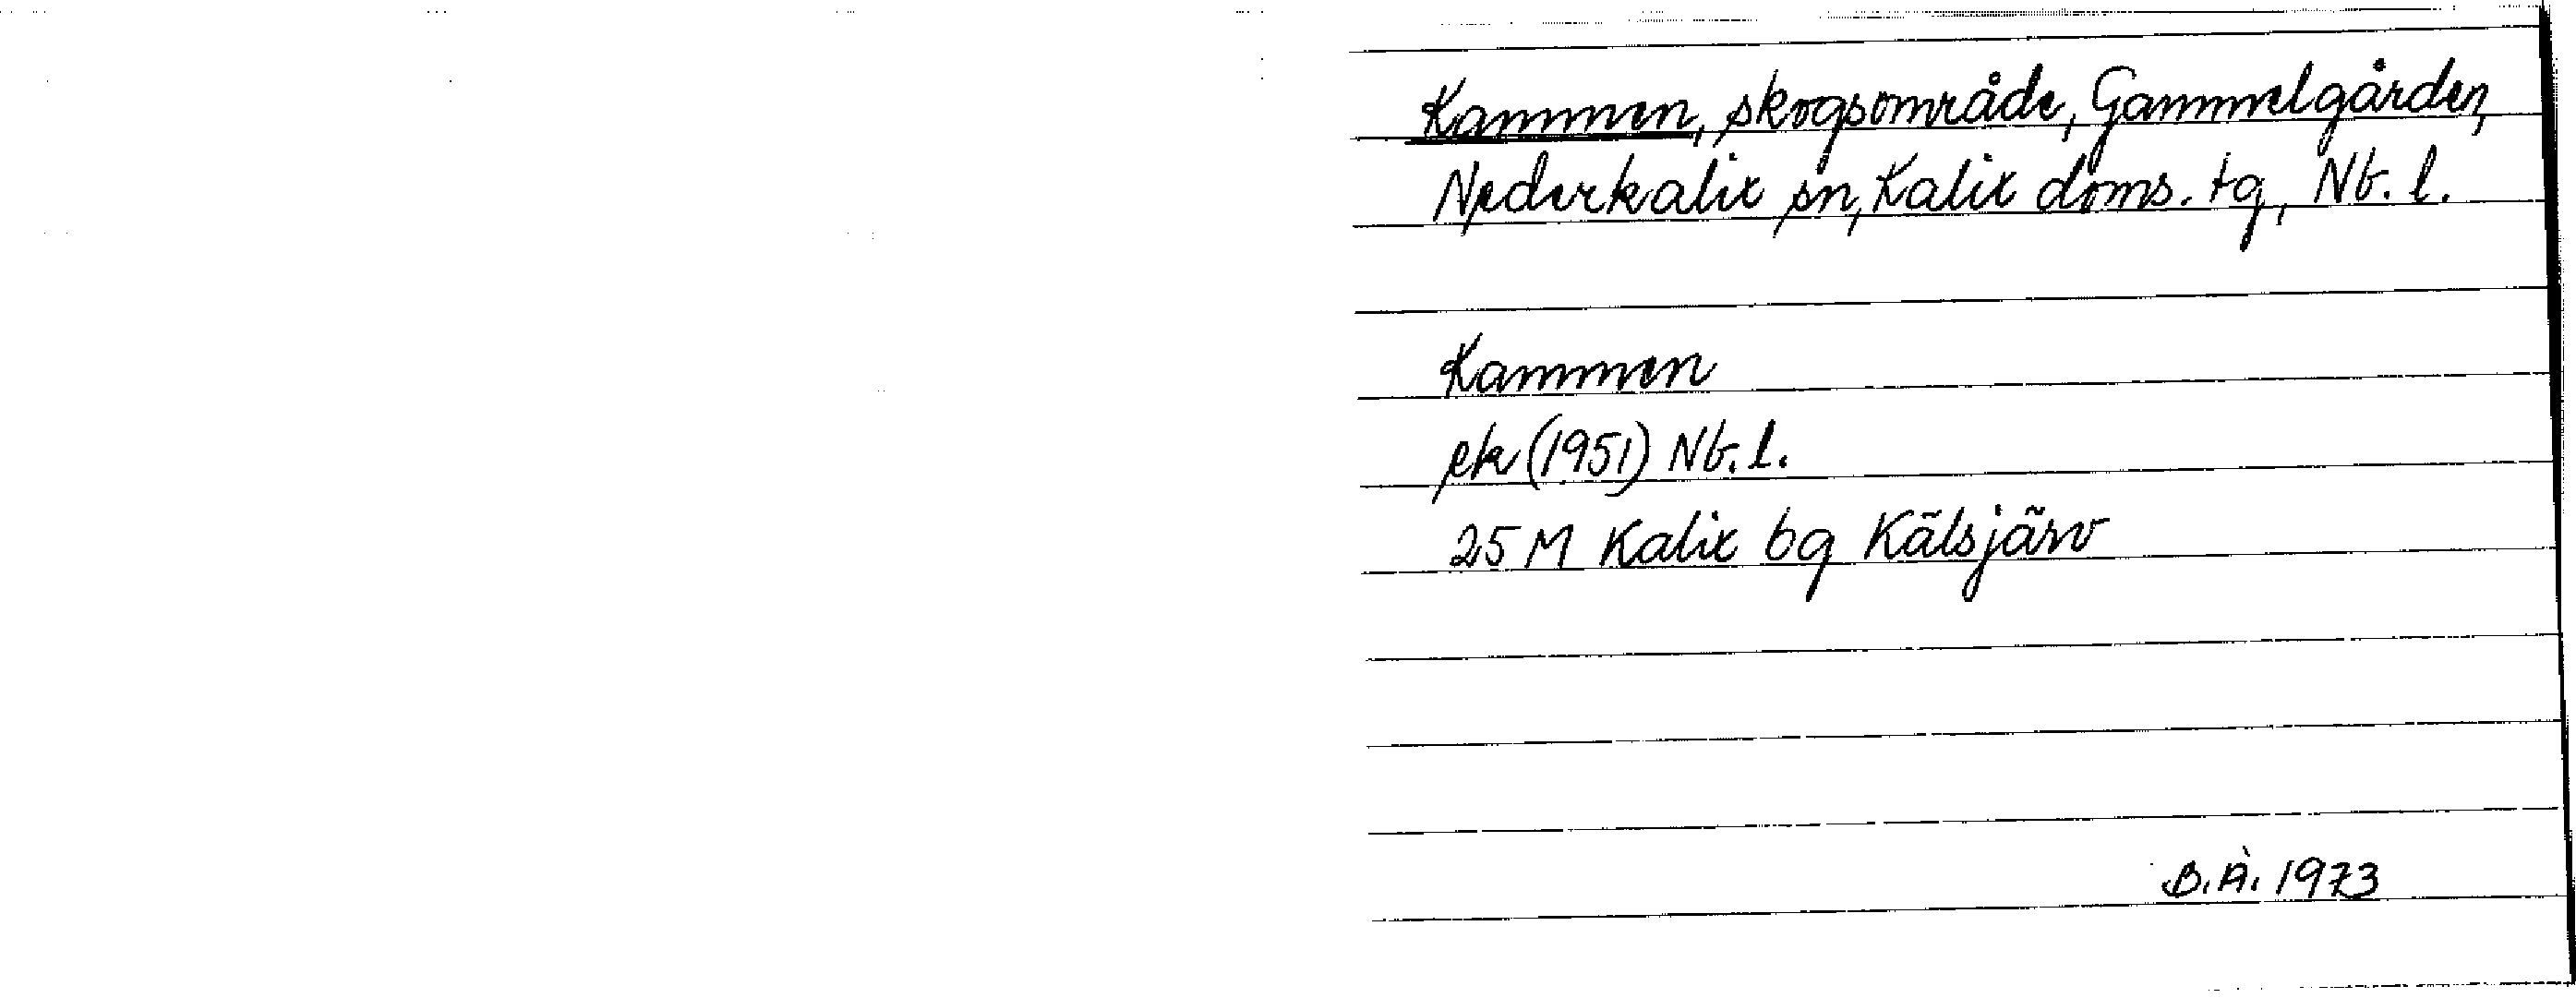 Kammen, skogsområde, Gammelgården,
Nederkalix sn, Kalix doms. tg, Nb. l.
Kammen
ek (1951) Nb. l.
25 M Kalix bg Kälsjärv
B.Å. 1973